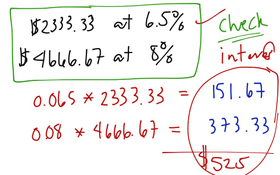 $2333.33 at 6.5%
check
$4666.67 at 8%
0.065 * 2333.33 = 151.67
0.08 * 4666.67 = 373.33
$525